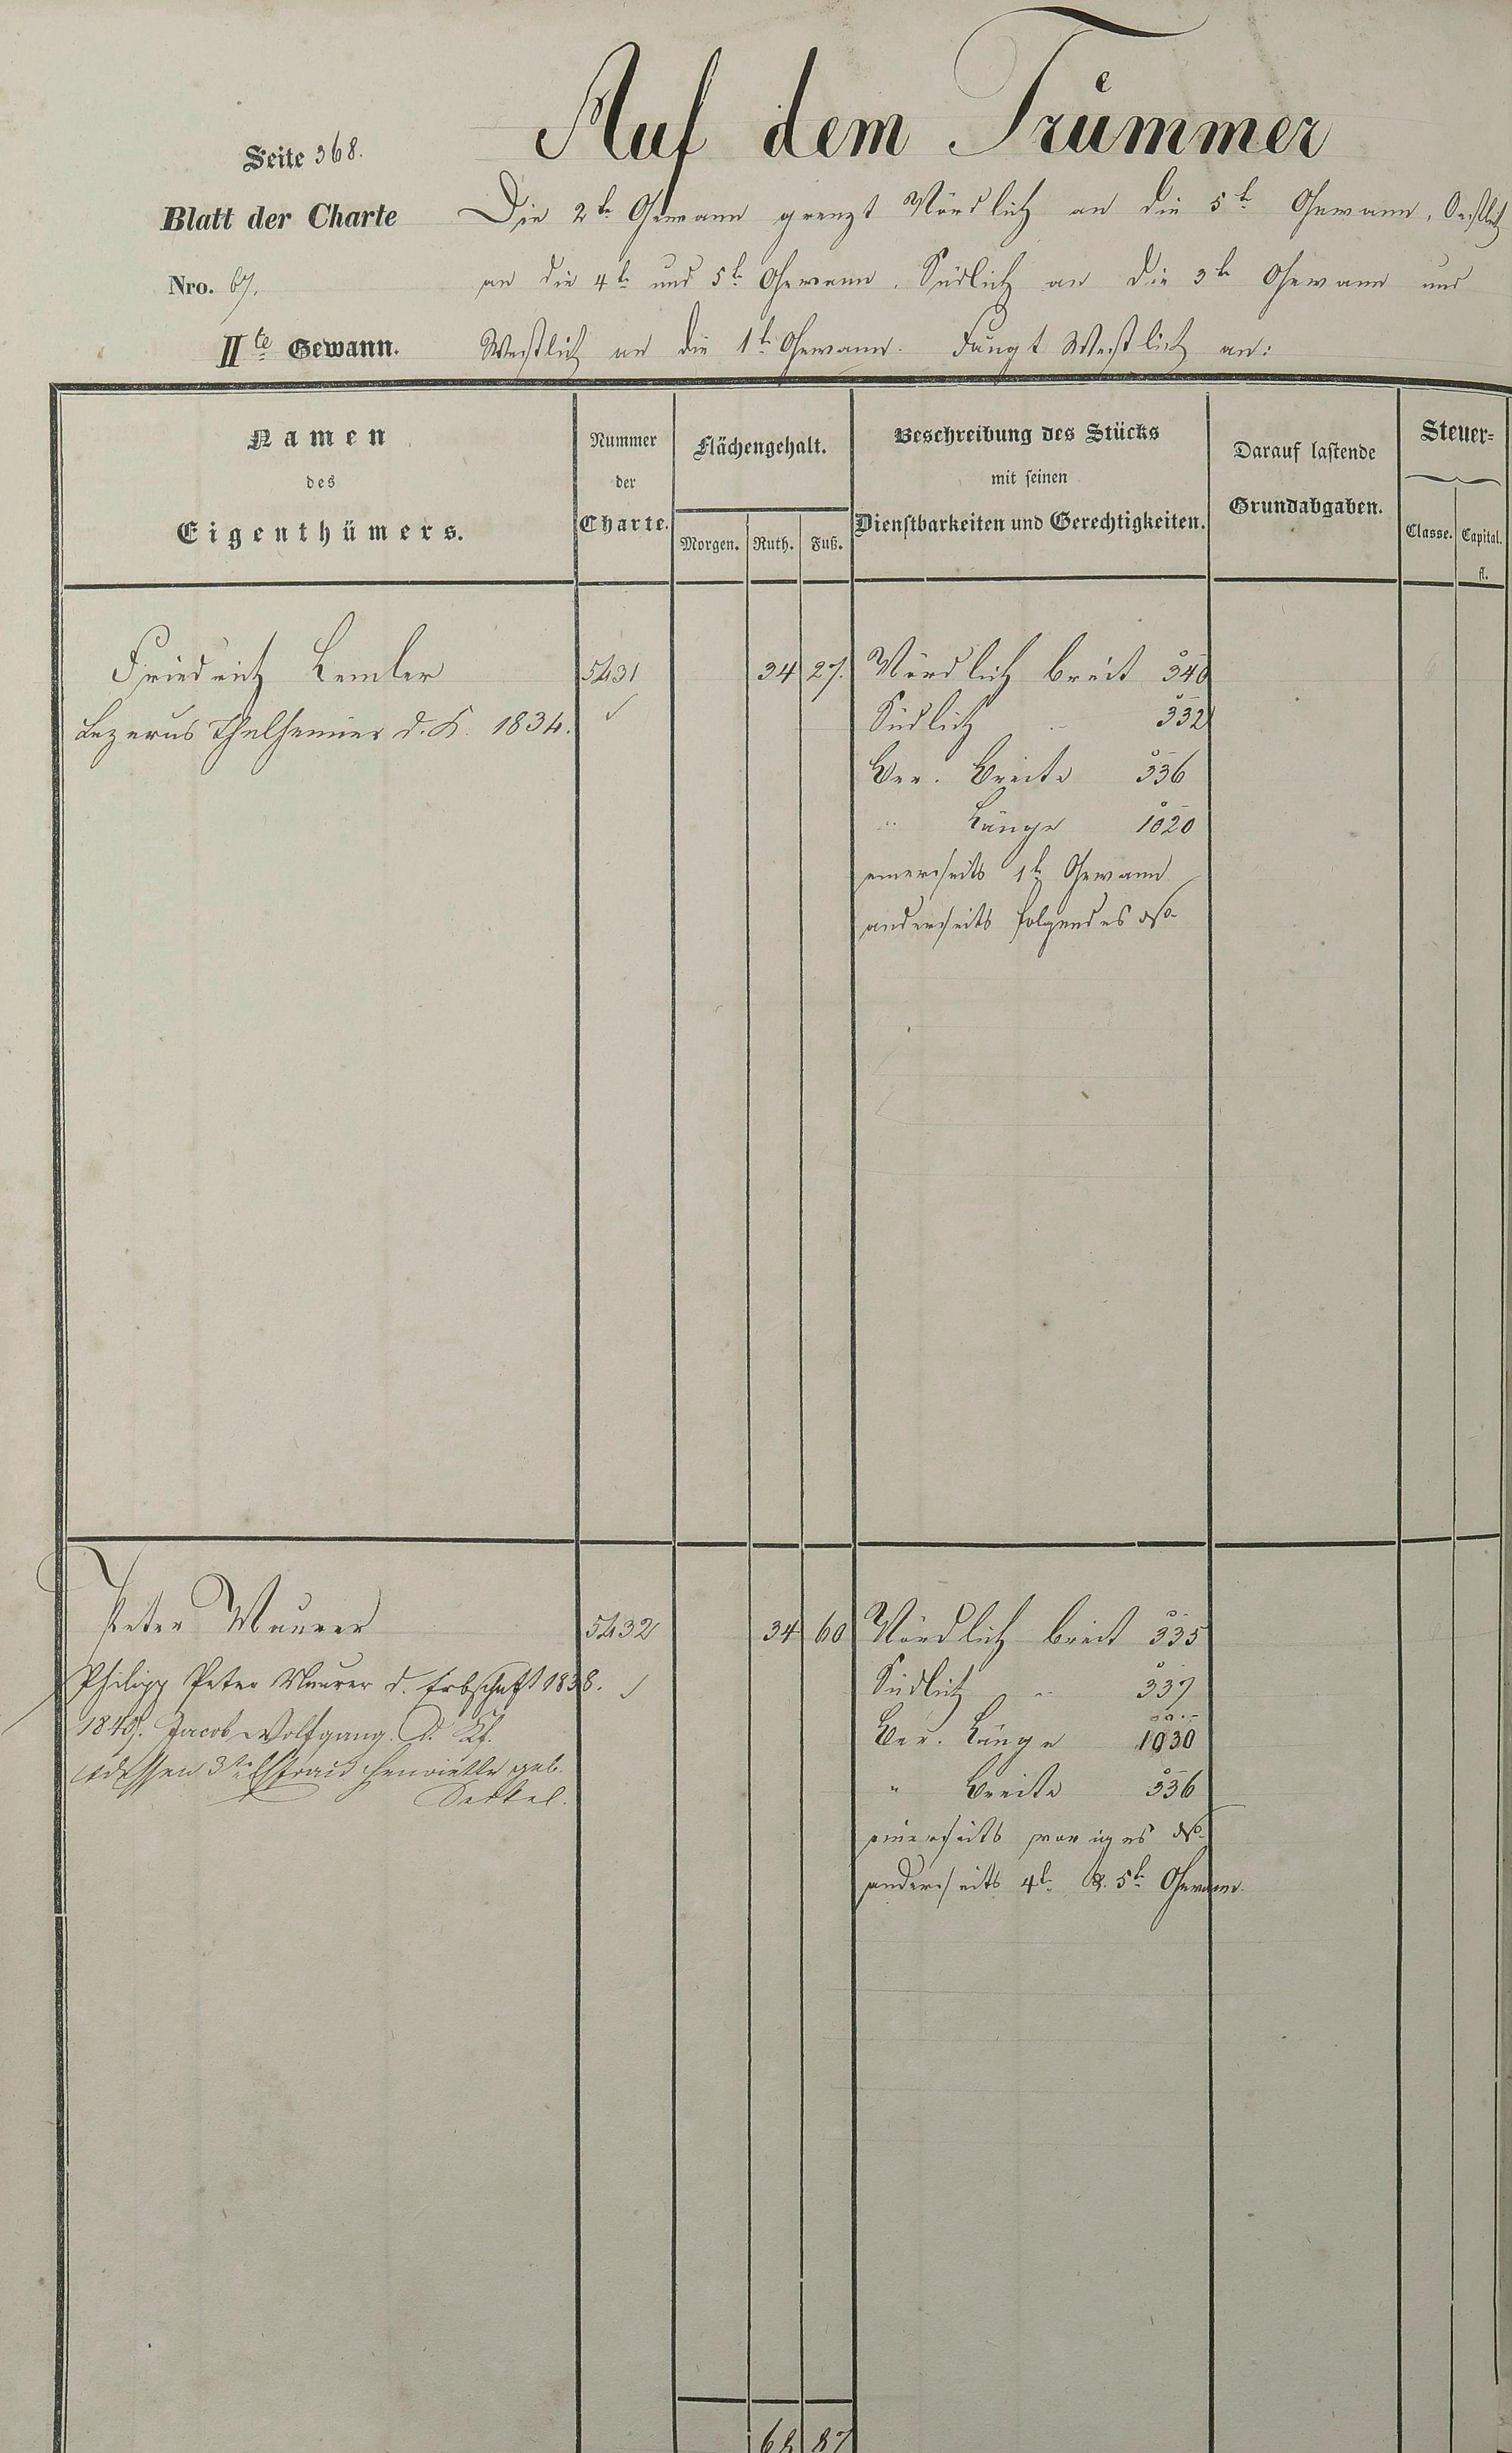 Auf dem Trümmer
Seite 368.
Blatt der Charte
Nro. 67.
IIte Gewann.
Die 2te Gewann grenzt Nördlich an die 5te Gewann, Oestlich
an die 4te und 5te Gewann, Südlich an die 3te Gewann und
Westlich an die 1te Gewann. Fängt Westlich an:
Namen
des
Eigenthümers.
Nummer
der
Charte.
Flächengehalt.
Morgen. Ruth. Fuß.
Beschreibung des Stücks
mit seinen
Dienstbarkeiten und Gerechtigkeiten.
Darauf lastende
Grundabgaben.
Steuer-
Classe. Capital.
fl.
Friedrich Lemler 5431 34 27. Nördlich breit 340
Lazarus d. K. 1834. Südlich " 332
Ber. Breite 336
" Länge 1020
einerseits 1te Gewann
anderseits folgendes No
Peter Maurer 5432 34 60 Nördlich breit 335
Philipp Peter Maurer d. Erbschaft 1838. Südlich " 337
Jacob Wolfgang. d. Kf. Ber. Länge 1030
dessen 3te Ehefrau Henriette geb. " Breite 336
einerseits voriges No
anderseits 4te & 5te Gewann.
68 87